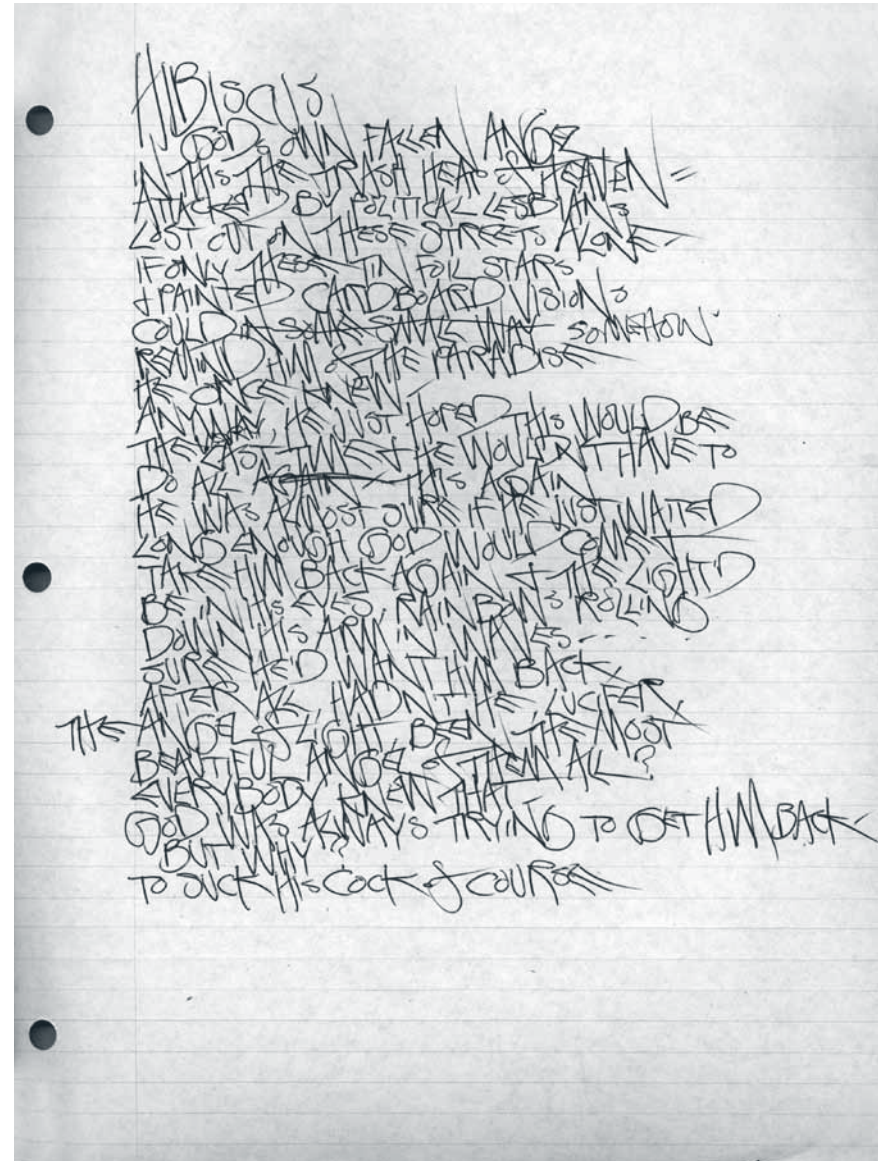 HIBISCUS
GOD'S OWN FALLEN ANGEL
IN THIS THE TRASH HEAP OF HEAVEN –
ATTACKED BY POLITICAL LESBIANS
LOST OUT ON THESE STREETS ALONE –
IF ONLY THESE TIN FOIL STARS
& PAINTED CARDBOARD VISIONS
COULD IN SOME SMALL WAY SOMEHOW
REMIND HIM OF THE PARADISE
HE ONCE KNEW
ANYWAY, HE JUST HOPED THIS WOULD BE
THE LAST TIME & HE WOULDN'T HAVE TO
DO ALL AGAIN THIS AGAIN
HE WAS ALMOST SURE IF HE JUST WAITED
LONG ENOUGH GOD WOULD COME &
TAKE HIM BACK AGAIN & THE LIGHT'D
BE IN HIS EYES, RAINBOWS ROLLING
DOWN HIS ARM IN WAVES – – –
SURE HE'D WANT HIM BACK,
AFTER ALL HADN'T HE LUCIFER
THE ANGEL OF LIGHT BEEN THE MOST
BEAUTIFUL ANGEL OF THEM ALL?
EVERYBODY KNEW THAT
GOD WAS ALWAYS TRYING TO GET HIM BACK
BUT WHY?
TO SUCK HIS COCK OF COURSE